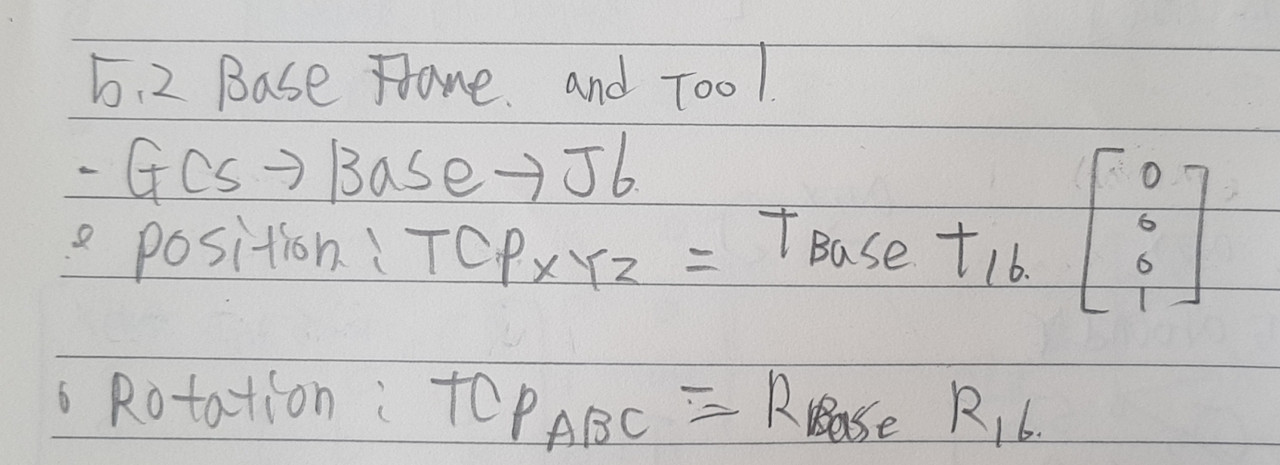 5.2 Base Frame. and Tool.
- GCS → Base → J6
• position : TCP_XYZ = T_Base T_16. [0 0 0 1]
• Rotation : TCP_ABC = R_Base R_16.